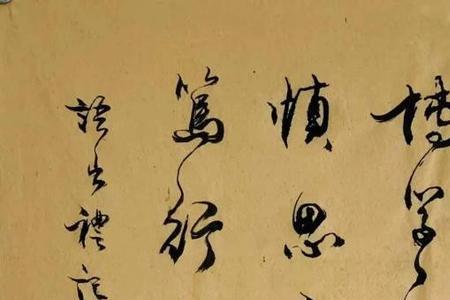 博学
慎思
篤行
語出禮記